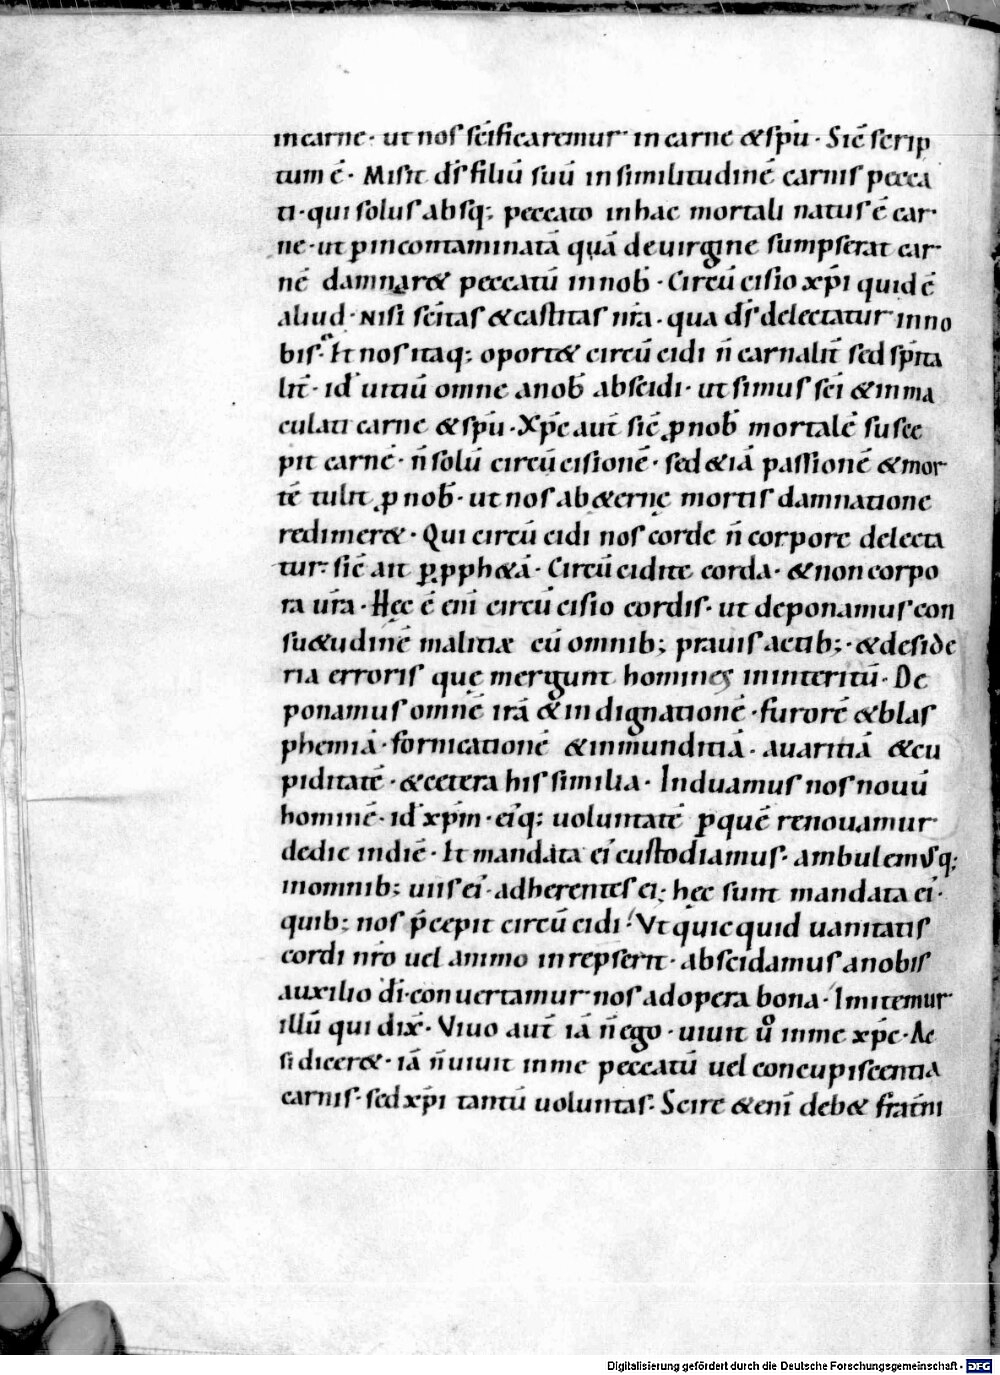 in carne · ut nos sc̄ificaremur in carne &sp̄u · Sic̄ scrip
tum ē · Misit d̄s filiū suū in similitudinē carnis pecca
ti · qui solus absq; peccato in hac mortali natus ē car·
ne · ut p incontaminatā quā de uirgine sumpserat car·
nē damnar& peccatū in nob̄ · Circū cisio xp̄i quid ē
aliud · nisi sc̄itas & castitas nr̄a · qua d̄s delectatur in no
bis · Et nos itaq; oport& circū cidi n̄ carnalit̄ sed sp̄ita
lit̄ · id̄ uitiū omne a nob̄ abscidi · ut simus sc̄i & inma
culati carne &sp̄u · Xp̄c aut̄ sic̄ p nob̄ mortalē susce
pit carnē · n̄ solū circū cisionē · sed & iā passionē & mor·
tē tulit p nob̄ · ut nos ab &ernę mortis damnatione
redimer& · Qui circū cidi nos corde n̄ corpore delecta
tur · sic̄ ait p pph&ā · Circū cidite corda · & non corpo
ra ur̄a · Hęc ē eni̅ circū cisio cordis · ut deponamus con
su&udinē malitiæ cū omnib; prauis actib; · & deside
ria erroris quę mergunt homines in interitū · De
ponamus omnē irā & indignationē · furorē & blas
phemiā · fornicationē & inmunditiā · auaritiā & cu
piditatē · & cetera his similia · Induamus nos nouū
hominē · id̄ xp̄m · ei̅q; uoluntatē p quē renouamur
de die in diē · Et mandata ei̅ custodiamus · ambulemusq;
in omnib; uiis ei̅ · adherentes ei; hęc sunt mandata ei̅ ·
quib; nos p̄cepit circū cidi · Vt quicquid uanitatis
cordi nr̄o uel animo inrepserit · abscidamus a nobis
auxilio dī · conuertamur nos ad opera bona · Imitemur
illū qui dix̄ · Viuo aut̄ iā n̄ ego · uiuit ů in me xp̄c · Ac
si dicer& · iā n̄ uiuit in me peccatū uel concupiscentia
carnis · sed xp̄i tantū uoluntas · Scire &eni̅ deb& frat̄ni
Digitalisierung gefördert durch die Deutsche Forschungsgemeinschaft - DFG